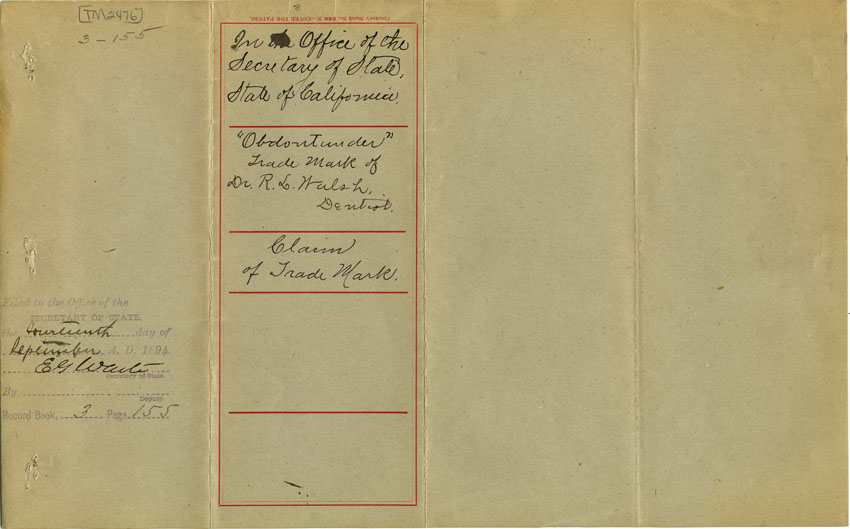 TM2476
3-155
In the Office of the
Secretary of State,
State of California.
"Obdontunder"
Trade Mark of
Dr. R. L. Walsh,
Dentist.
Claim
of Trade Mark.
Filed in the Office of the
SECRETARY OF STATE,
the fourteenth day of
September A. D. 1894
E G Waite
Secretary of State.
By
Deputy.
Record Book, 3 Page 155